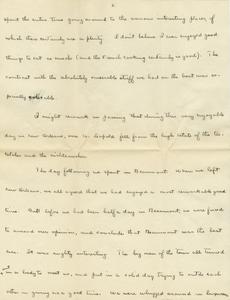 2
spent the entire time going around to the various interesting places, of
which there certainly are a plenty. I don't believe I ever enjoyed good
things to eat so much (and the French cooking certainly is good). The
contrast with the absolutely miserable stuff we had on the boat was es-
pecially noticeable.
I might remark in passing that during this very enjoyable
day in New Orleans, one Leopold fell from the high estate of the tee
totaler and the
The day following we spent in Beaumont. When we left
New Orleans, we all agreed that we had enjoyed a most remarkable good
time. But before we had been half a day in Beaumont, we were forced
to amend our opinion, and conclude that Beaumont was the best
ever. It was mighty interesting. The big men of the town all turned
out in a body to meet us, and put in a solid day trying to outdo each
other in giving us a good time. We were whipped around in